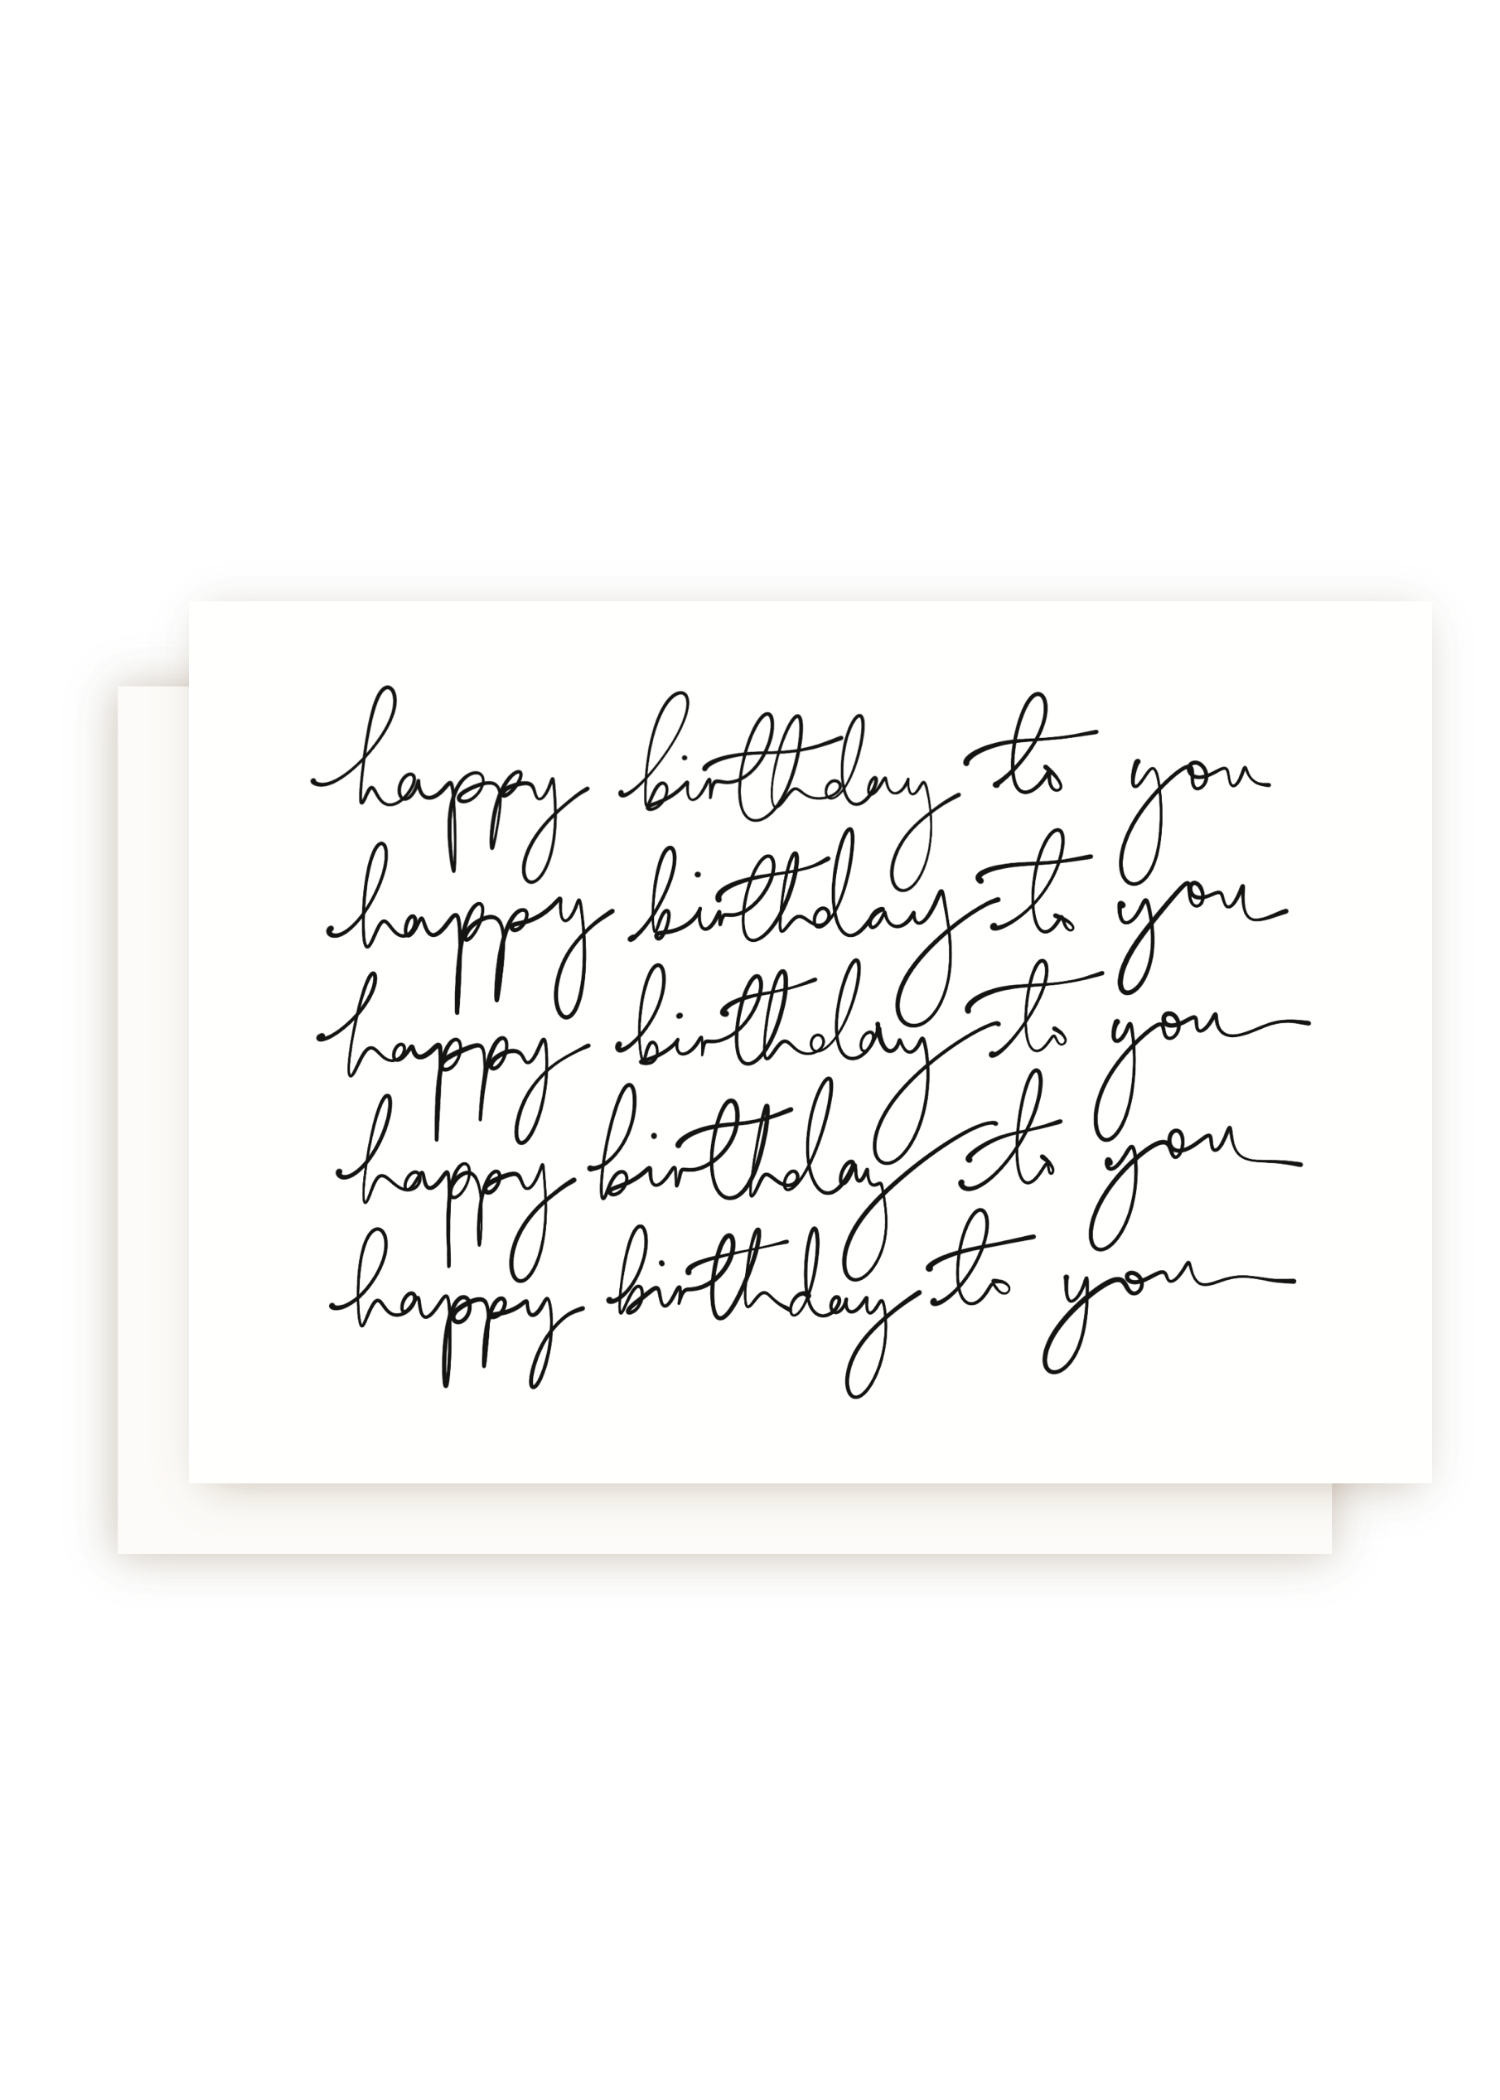 happy birthday to you
happy birthday to you
happy birthday to you
happy birthday to you
happy birthday to you